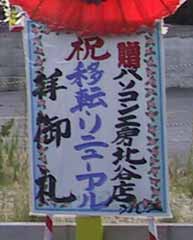 贈パソコン工房北谷店
祝移転リニューアル
拝御礼